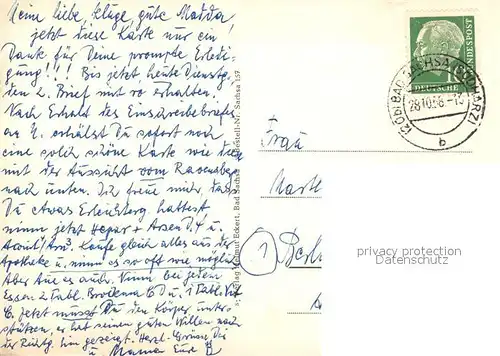 Meine liebe, kluge, gute Madda,
jetzt diese Karte nur ein
Dank für Deine prompte Erledi-
gung!!! Bis jetzt, heute Dienstg.
den 2. Brief mit so erhalten.
Nach Erhalt des Einschreibebriefes
an erhälst Du sofort noch
eine solch schöne Karte wie
mit der Aussicht vom Ravensberg
nach unten. Ich freue mich, dass
Du etwas Erleichterg. hattest
nimm jetzt Hepar + Arsen D.4 u.
Kaufe gleich alles aus der
Apotheke u. nimm es so oft wie möglich
Aber tue es auch. Nimm bei jedem
Essen 2 Tabl. u. 1 Tabl. Vit
C. Jetzt musst Du den Körper unter-
stützen, er hat seinen guten Willen nach
der Richtg. hin gezeigt. Herzl. Grüsse Dir
u. Mama Eure
Verlag Helmut Eckert, Bad Sachsa Sachsa 159
DEUTSCHE
BUNDESPOST
(20b) BAD SACHSA (SÜDHARZ)
28.10.58-13
b
Frau
Marth
1 Berli
privacy protection
Datenschutz